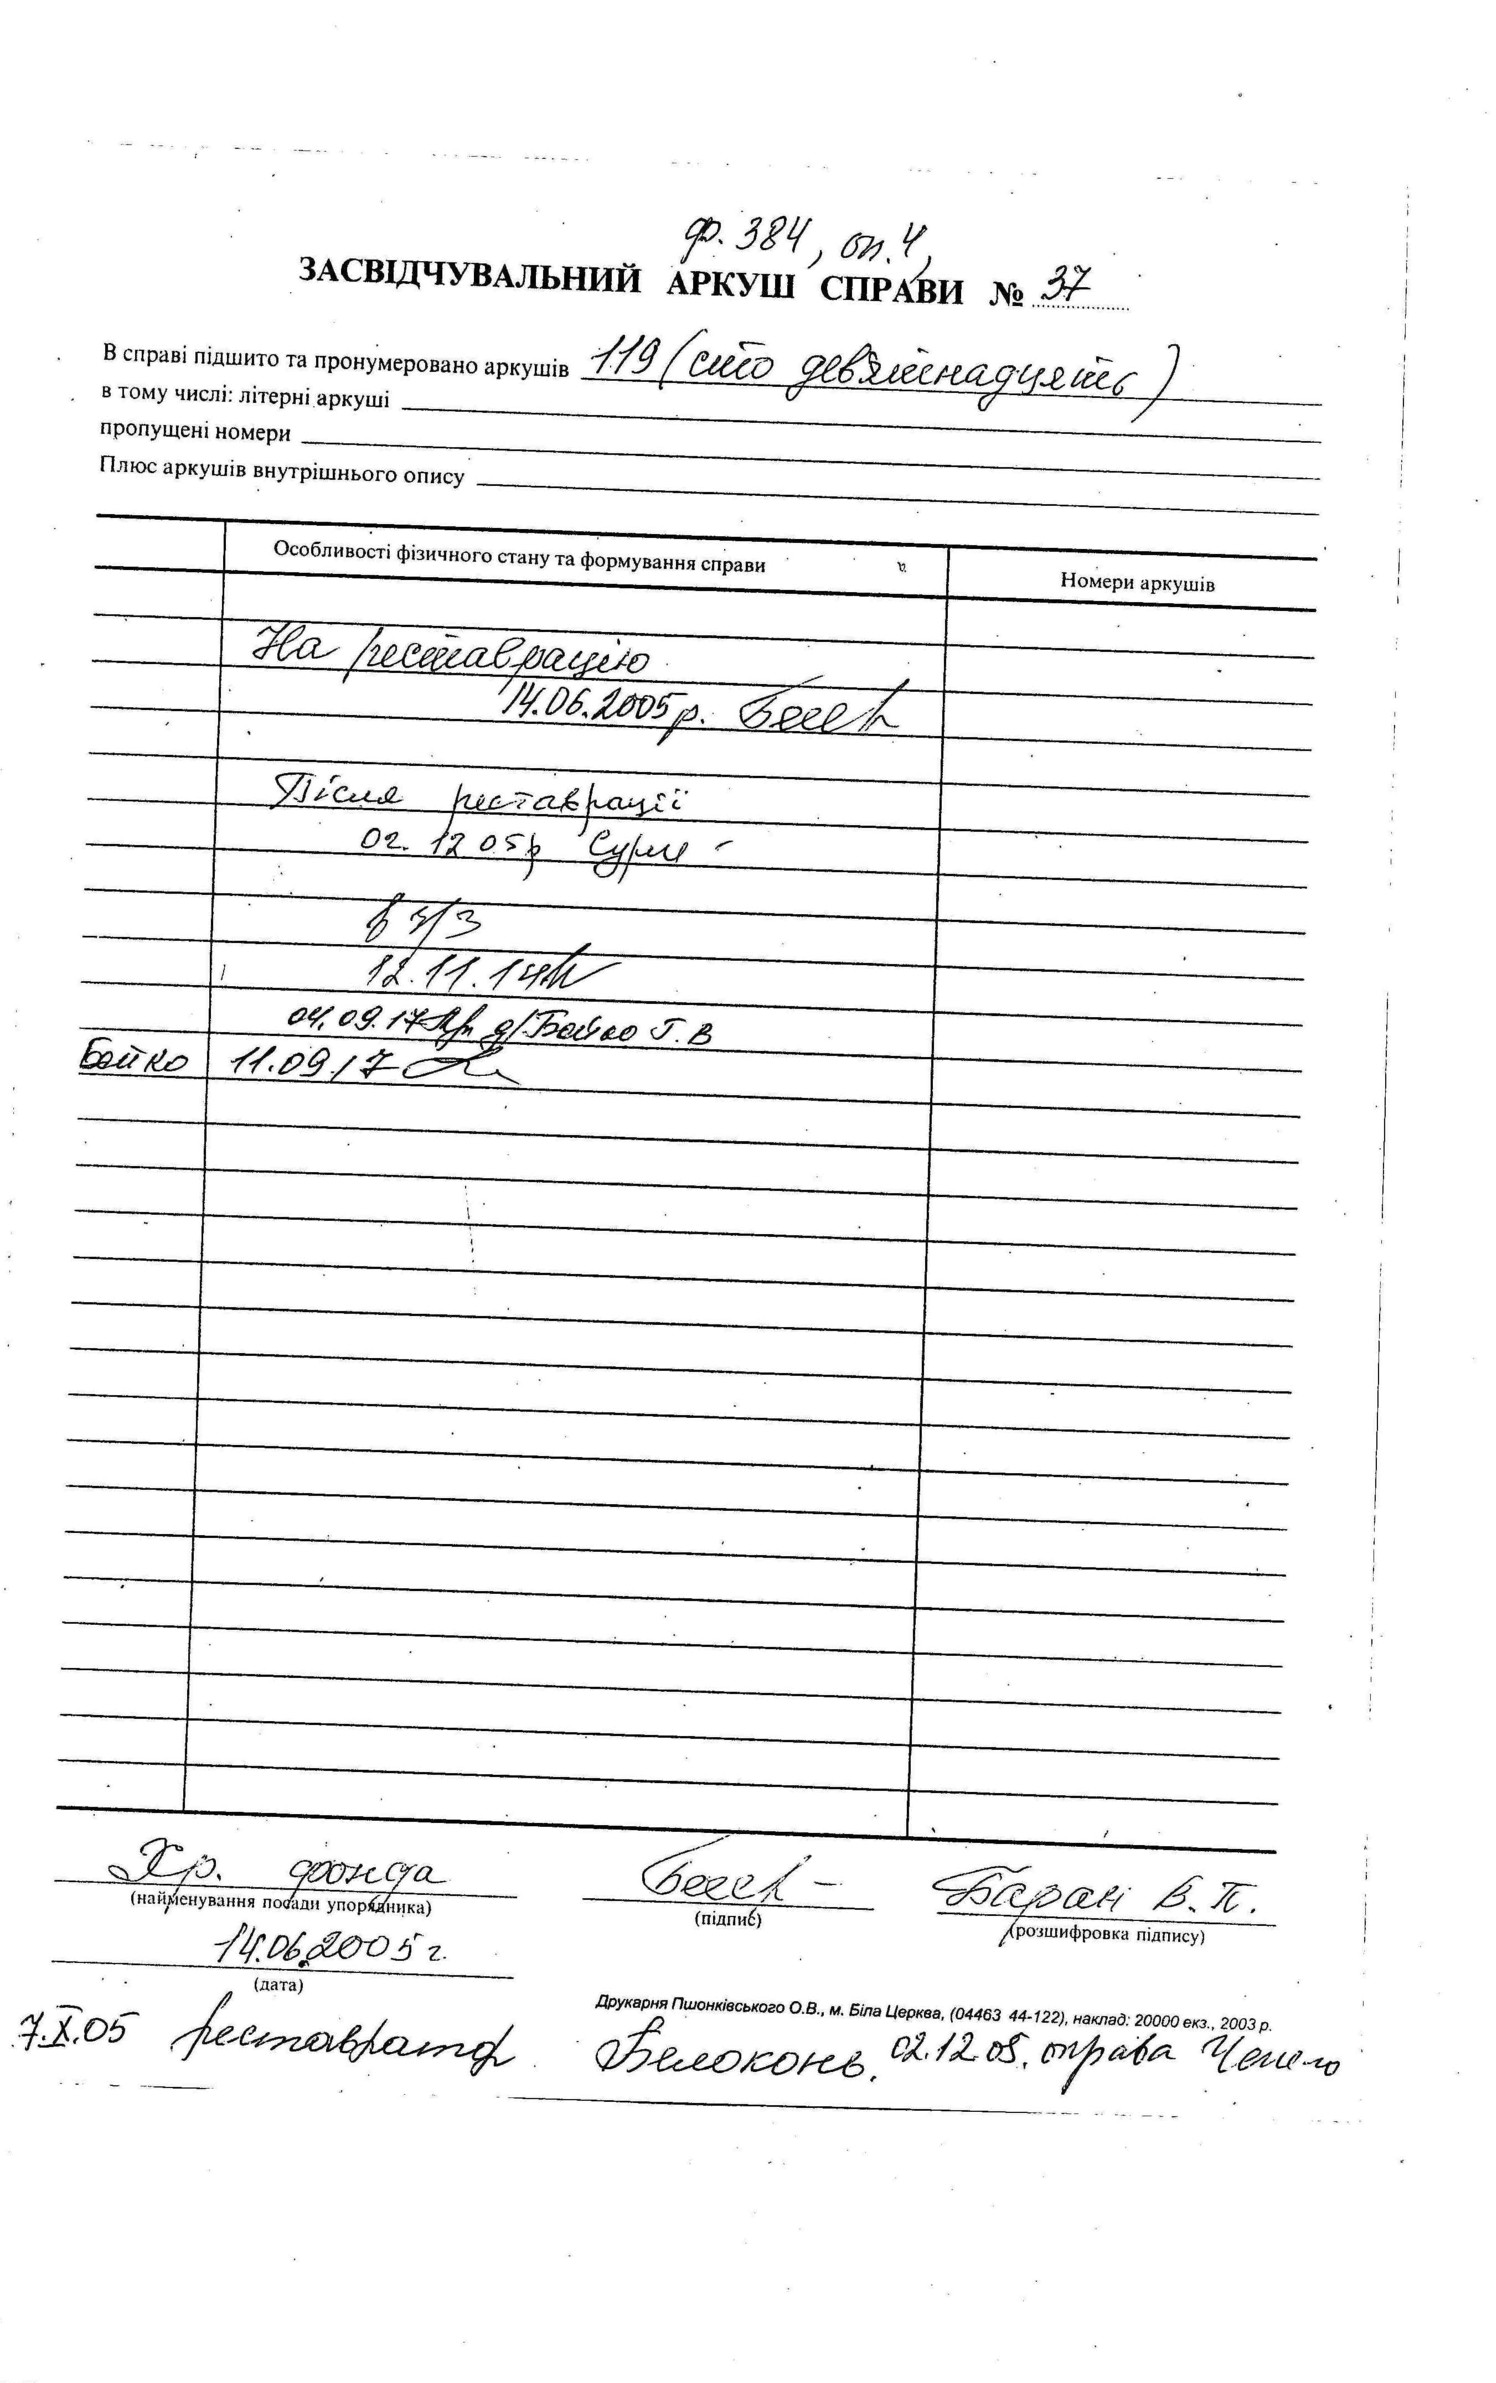 ф. 384, оп. 4,
ЗАСВІДЧУВАЛЬНИЙ АРКУШ СПРАВИ № 37
В справі підшито та пронумеровано аркушів 119 (сто дев'ятнадцять)
в тому числі: літерні аркуші
пропущені номери
Плюс аркушів внутрішнього опису
Особливості фізичного стану та формування справи
Номери аркушів
На реставрацію
14.06.2005 р.
Після реставрації
02. 12 05 р
12.11.14
04.09.17 Бойко Г. В
Бойко 11.09.17
Хр. фонда
Баран В. П.
(найменування посади упорядника)
(підпис)
(розшифровка підпису)
14.06.2005 г.
(дата)
Друкарня Пшонківського О.В., м. Біла Церква, (04463 44-122), наклад: 20000 екз., 2003 р.
7.X.05 реставратор Белоконь. 02.12.05. оправа